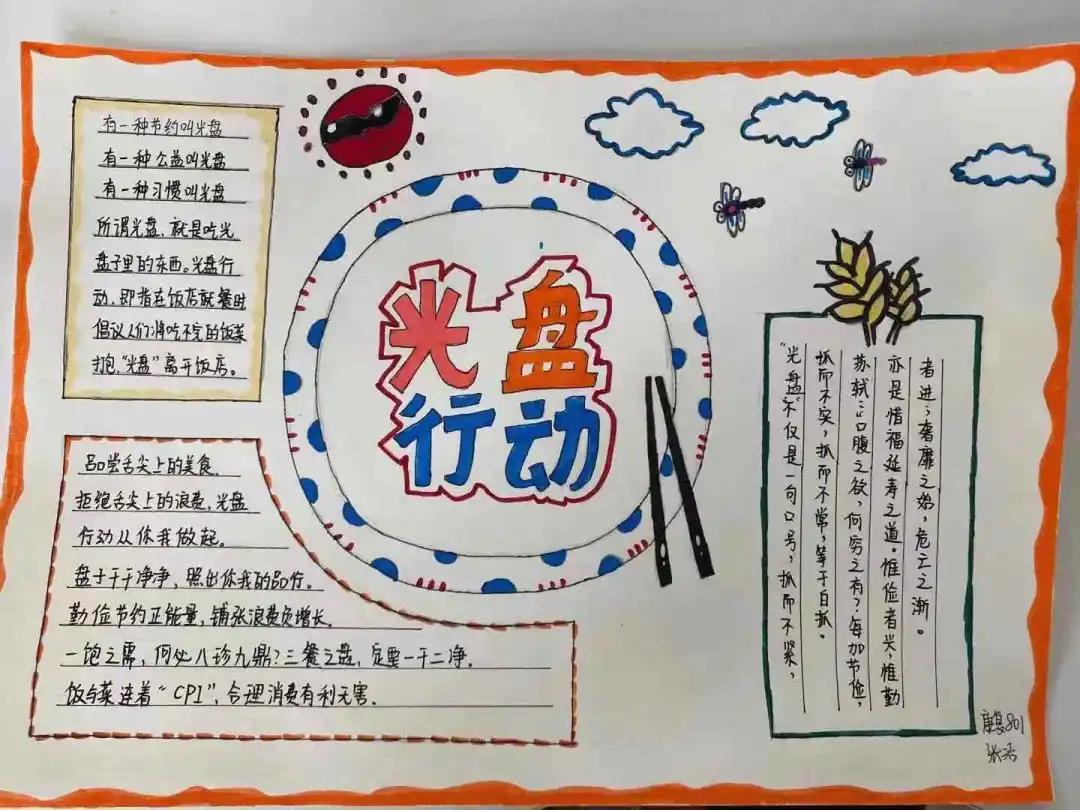 有一种节约叫光盘
有一种公益叫光盘
有一种习惯叫光盘
所谓光盘,就是吃光
盘子里的东西。光盘行
动,即指在饭店就餐时
倡议人们将吃不完的饭菜
打包,“光盘”离开饭店。
光盘
行动
品尝舌尖上的美食,
拒绝舌尖上的浪费,光盘
行动从你我做起。
盘士干干净净,照出你我的品行。
勤俭节约正能量,铺张浪费负增长.
一饱之需,何必八珍九鼎?三餐之盘,定要一干二净.
饭与菜连着“CPI”,合理消费有利无害.
“光盘”不仅是一句口号,抓而不紧,
抓而不实,抓而不常,等于白抓。
苏轼:口腹之欲,何穷之有?每加节俭,
亦是惜福延寿之道。惟俭者兴,惟勤
者进;奢靡之始,危亡之渐。
801